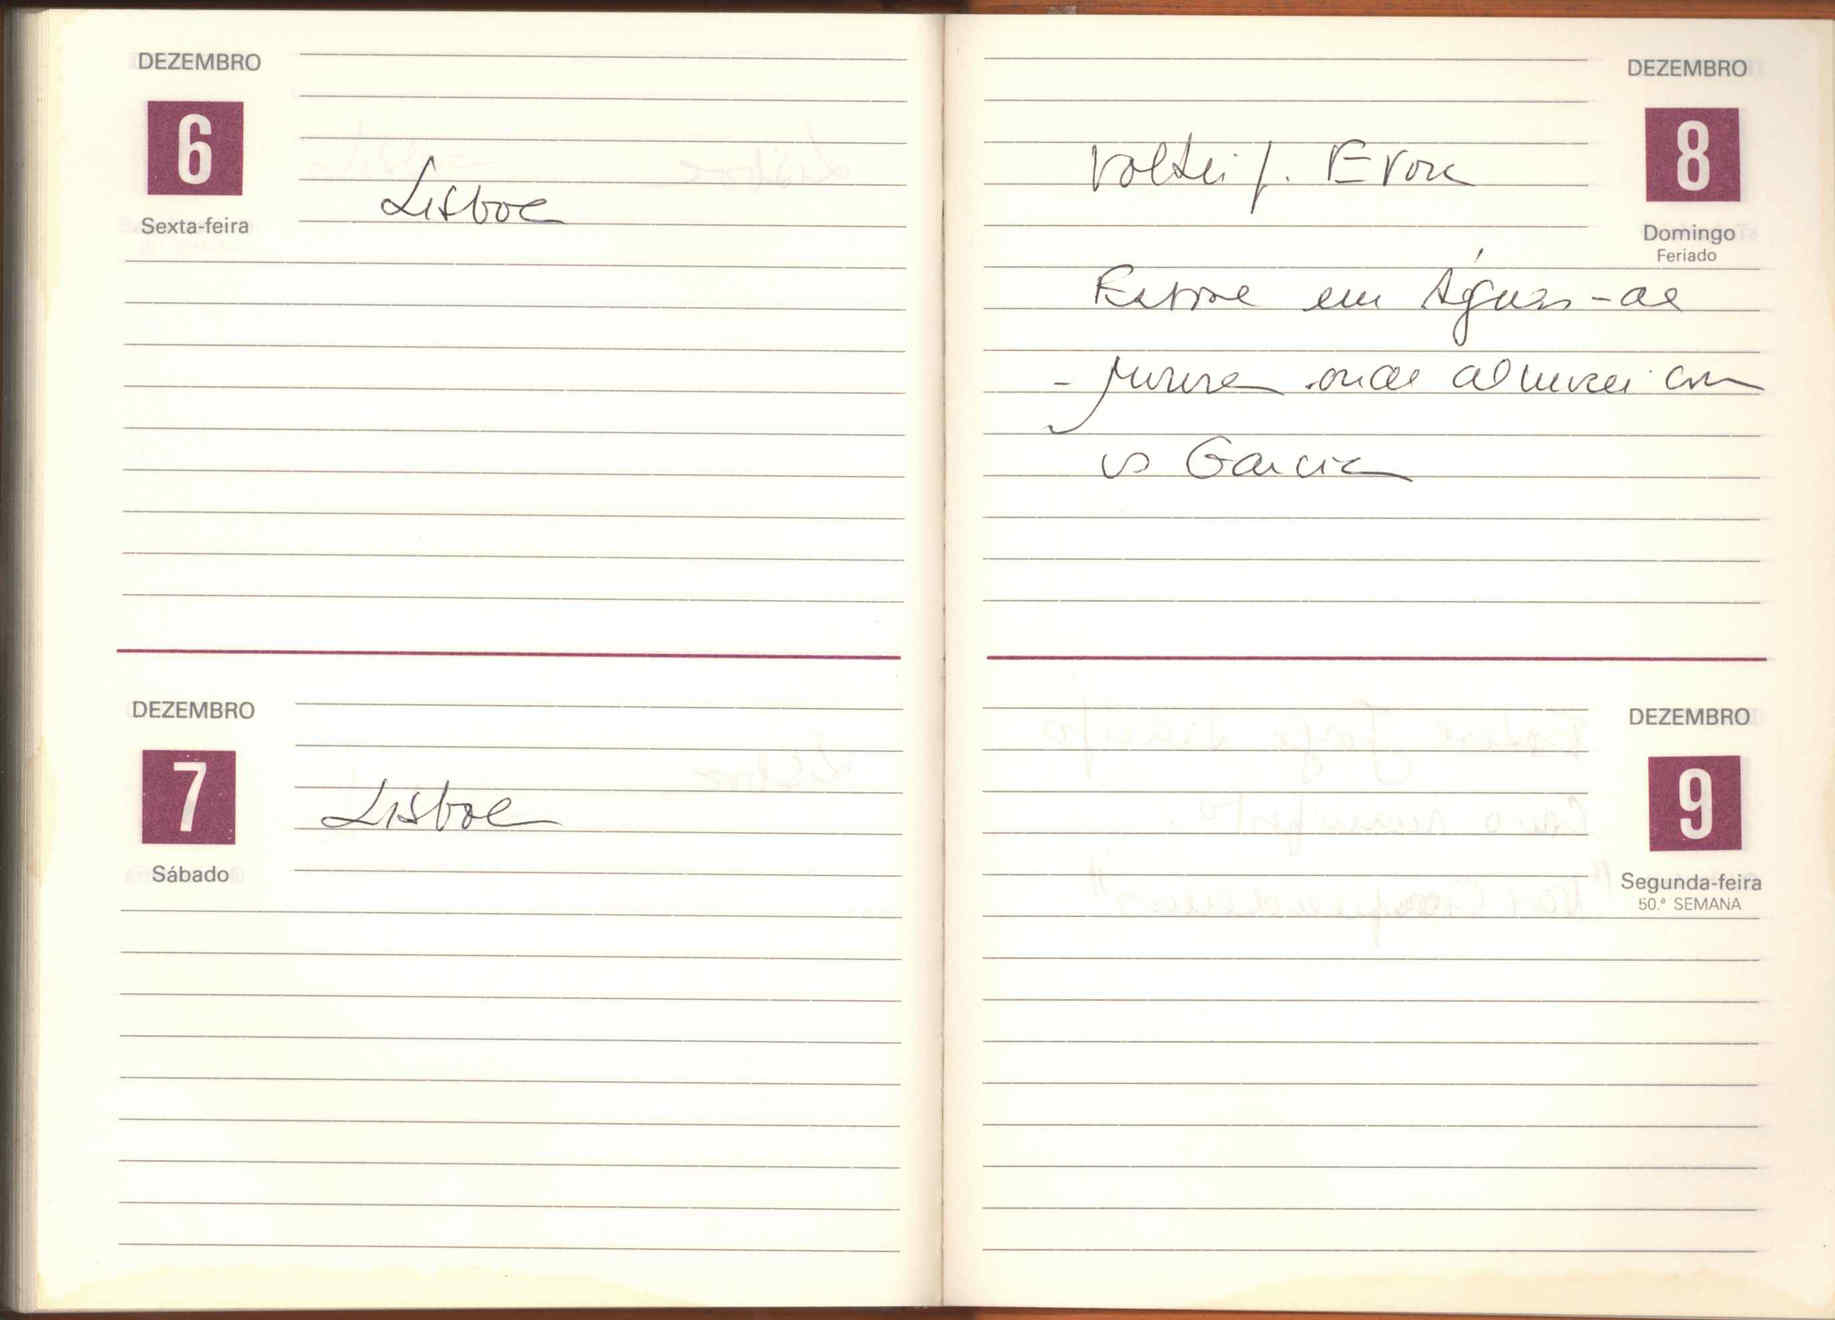 DEZEMBRO
6
Sexta-feira
Lisboa
DEZEMBRO
7
Sábado
Lisboa
DEZEMBRO
8
Domingo
Feriado
Voltei p. Evora
Estive em Águas-de
-Moura onde almocei com
os Garcia
DEZEMBRO
9
Segunda-feira
50.ª SEMANA